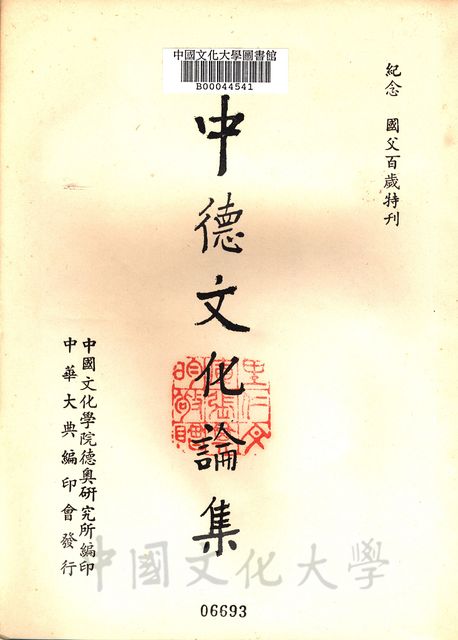 中國文化大學圖書館
B00044541
紀念 國父百歲特刊
中德文化論集
中國文化學院德奧研究所編印
中華大典編印會發行
中國文化大學
06693